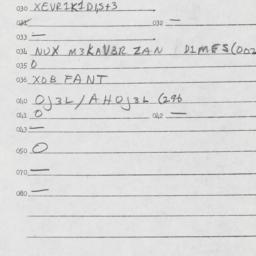 030 XEVR1K1D1S+3
031 032 —
033 —
034 NUX M3KAVBR ZAN D1MES(002
035 0
036 XDB FANT
040 0J3L/AH0J3L (296
041 0 042 —
043 —
050 0
070 —
080 —